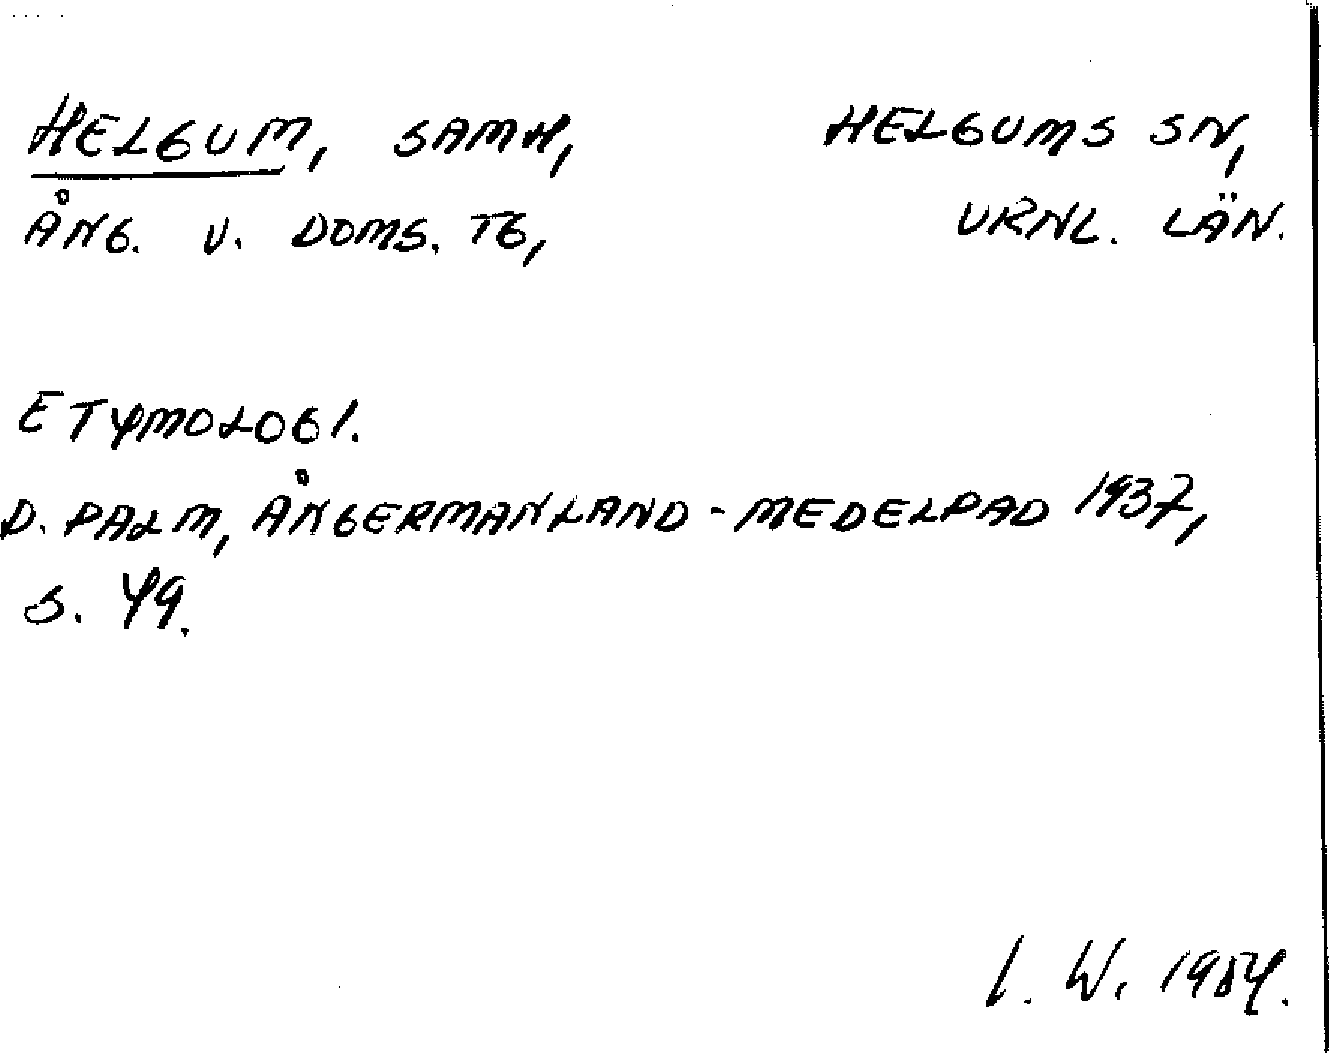 HELGUM, SAMH, HELGUMS SN,
ÅNG. V. DOMS. TG, VRNL. LÄN.
ETYMOLOGI.
D. PALM, ÅNGERMANLAND - MEDELPAD 1937,
S. 49.
I. W. 1984.